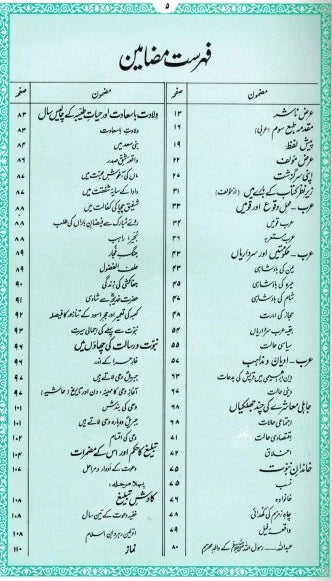 ۵
فہرست مضامین
مضمون
صفحہ
عرض ناشر ۱۳
مقدمہ طبع سوم (عربی) ۱۶
پیش لفظ ۱۹
عرض مؤلف ۲۲
اپنی سرگزشت ۲۷
زیر نظر کتاب کے بارے میں (از مؤلف) ۳۱
عرب – محل وقوع اور قومیں ۳۳
عرب قومیں ۳۴
عرب مستعربہ
عرب – حکومتیں اور سرداریاں ۴۲
یمن کی بادشاہی
حیرہ کی بادشاہی
شام کی بادشاہی
حجاز کی امارت ۴۸
بقیہ عرب سرداریاں ۵۴
سیاسی حالت ۵۵
عرب – ادیان و مذاہب ۵۷
دین ابراہیمی میں قریش کی بدعات
دینی حالت
جاہلی معاشرے کی چند جھلکیاں ۶۸
اجتماعی حالات ۶۸
اقتصادی حالت ۷۱
اخلاق ۷۲
خاندان نبوت ۷۵
نسب ۷۵
خانوادہ ۷۶
چاہ زمزم کی کھدائی ۷۸
واقعہ فیل ۷۹
عبداللہ – رسول اللہ ﷺ کے والد محترم ۸۰
مضمون
صفحہ
ولادت باسعادت اور حیات طیبہ کے چالیس سال ۸۳
ولادت باسعادت ۸۳
بنی سعد میں ۸۴
واقعہ شق صدر ۸۶
ماں کی آغوش محبت میں ۸۷
دادا کے سایۂ شفقت میں ۸۷
شفیق چچا کی کفالت میں
روئے مبارک سے فیضان باراں کی طلب ۸۸
بحیرا راہب ۸۸
جنگ فجار ۸۹
حلف الفضول ۸۹
جفاکشی کی زندگی ۹۰
حضرت خدیجہ سے شادی ۹۱
کعبہ کی تعمیر اور حجر اسود کے تنازعہ کا فیصلہ ۹۲
نبوت سے پہلے کی اجمالی سیرت ۹۳
نبوت و رسالت کی چھاؤں میں
غار حرا کے اندر
جبریل وحی لاتے ہیں ۹۷
آغاز وحی کا مہینہ، دن اور تاریخ (حاشیہ) ۹۷
وحی کی بندش
جبریل دوبارہ وحی لاتے ہیں
وحی کی اقسام ۱۰۲
تبلیغ کا حکم اور اس کے مضمرات ۱۰۴
دعوت کے ادوار و مراحل ۱۰۷
پہلا مرحلہ:
کاوش تبلیغ ۱۰۸
خفیہ دعوت کے تین سال ۱۰۸
اولین رہروان اسلام ۱۰۸
نماز ۱۱۰